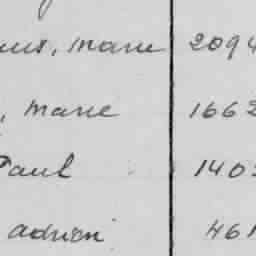 , Marie 2094
, Marie 1662
Paul 140
Adrien 461